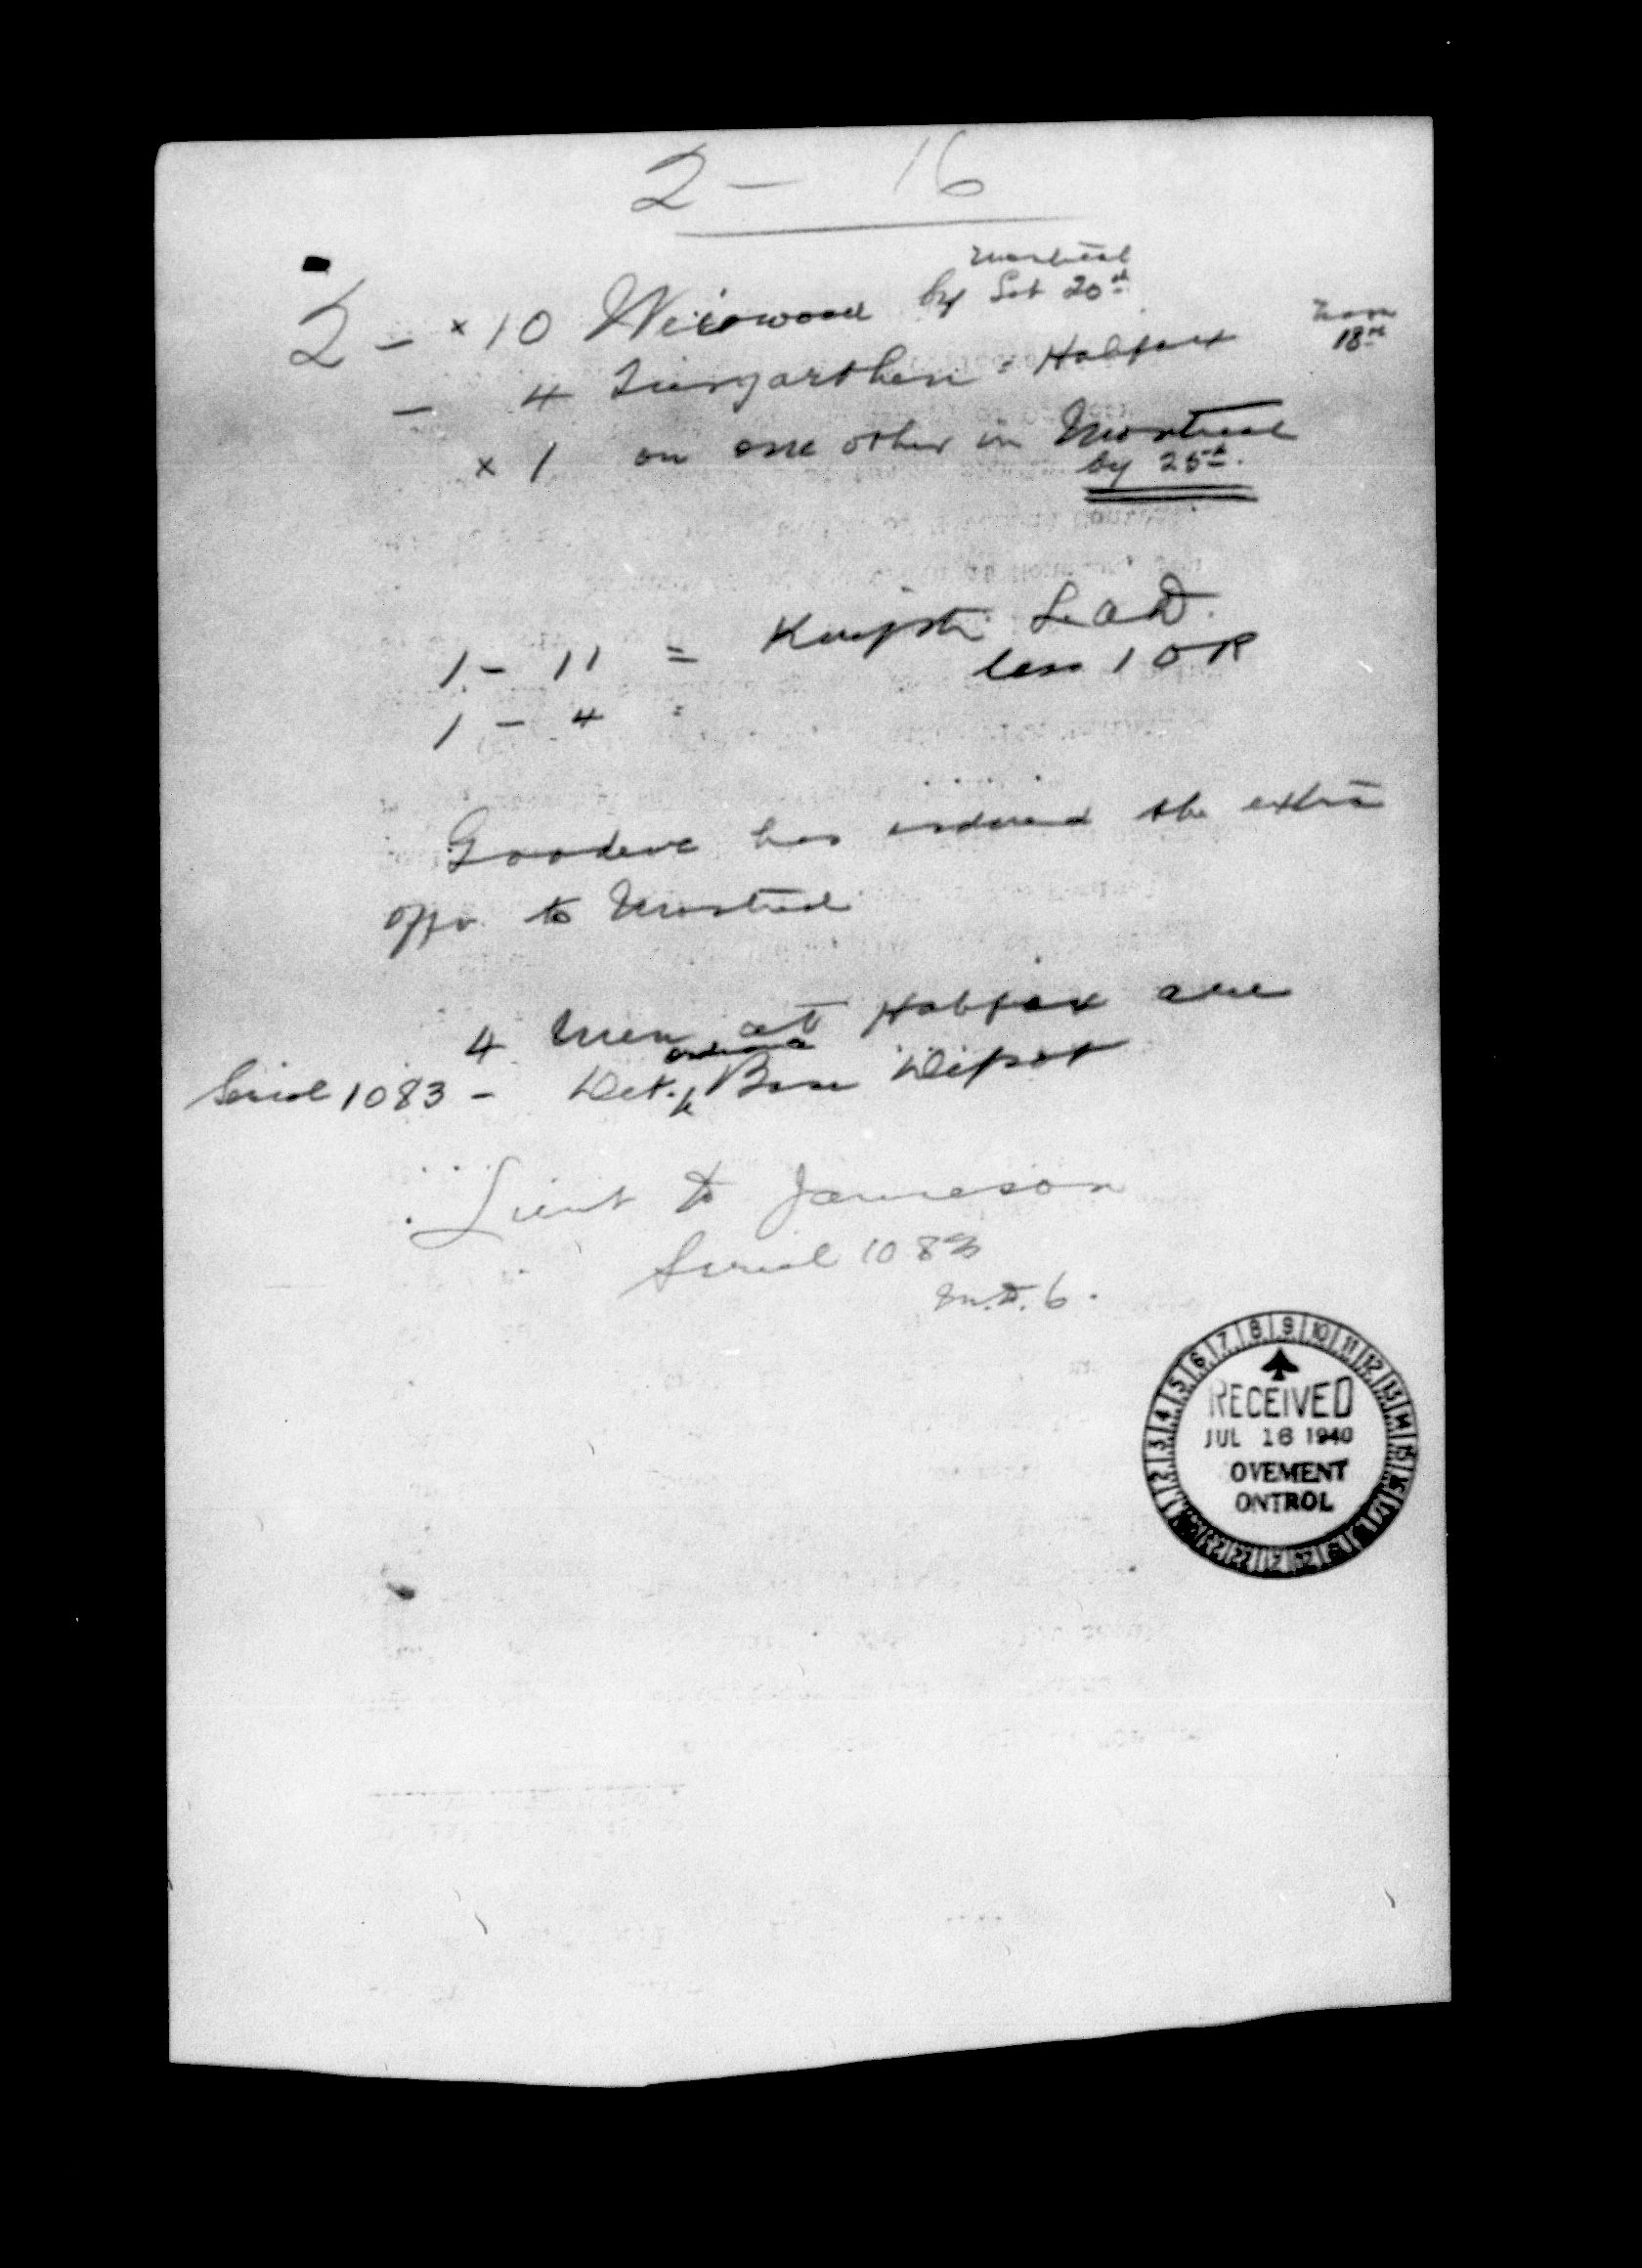 2 - 16
Montreal
2 - x 10 Weirwood by Sat 20th
- 4 Tiengarthen = Halifax Noon 18th
x 1 on one other in Montreal
by 25th.
1 - 11 = L.A.D.
less 1 OR
1 - 4 =
Goodeve has ordered the extra
offr. to Montreal
4 Men at Halifax are
ordnance
Serial 1083 - Det. Base Depot
Lieut Jameson
Serial 1083
M.D. 6.
1 2 3 4 5 6 7 8 9 10 11 12 13 14 15 16 17
RECEIVED
JUL 16 1940
OVEMENT
ONTROL